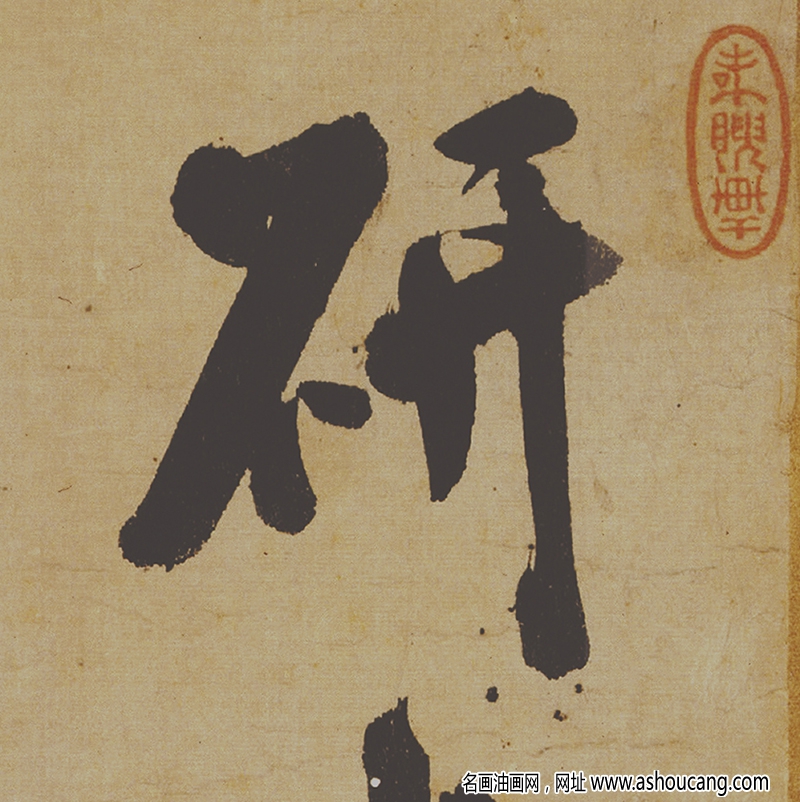 研
名画油画网，网址 www.ashoucang.com